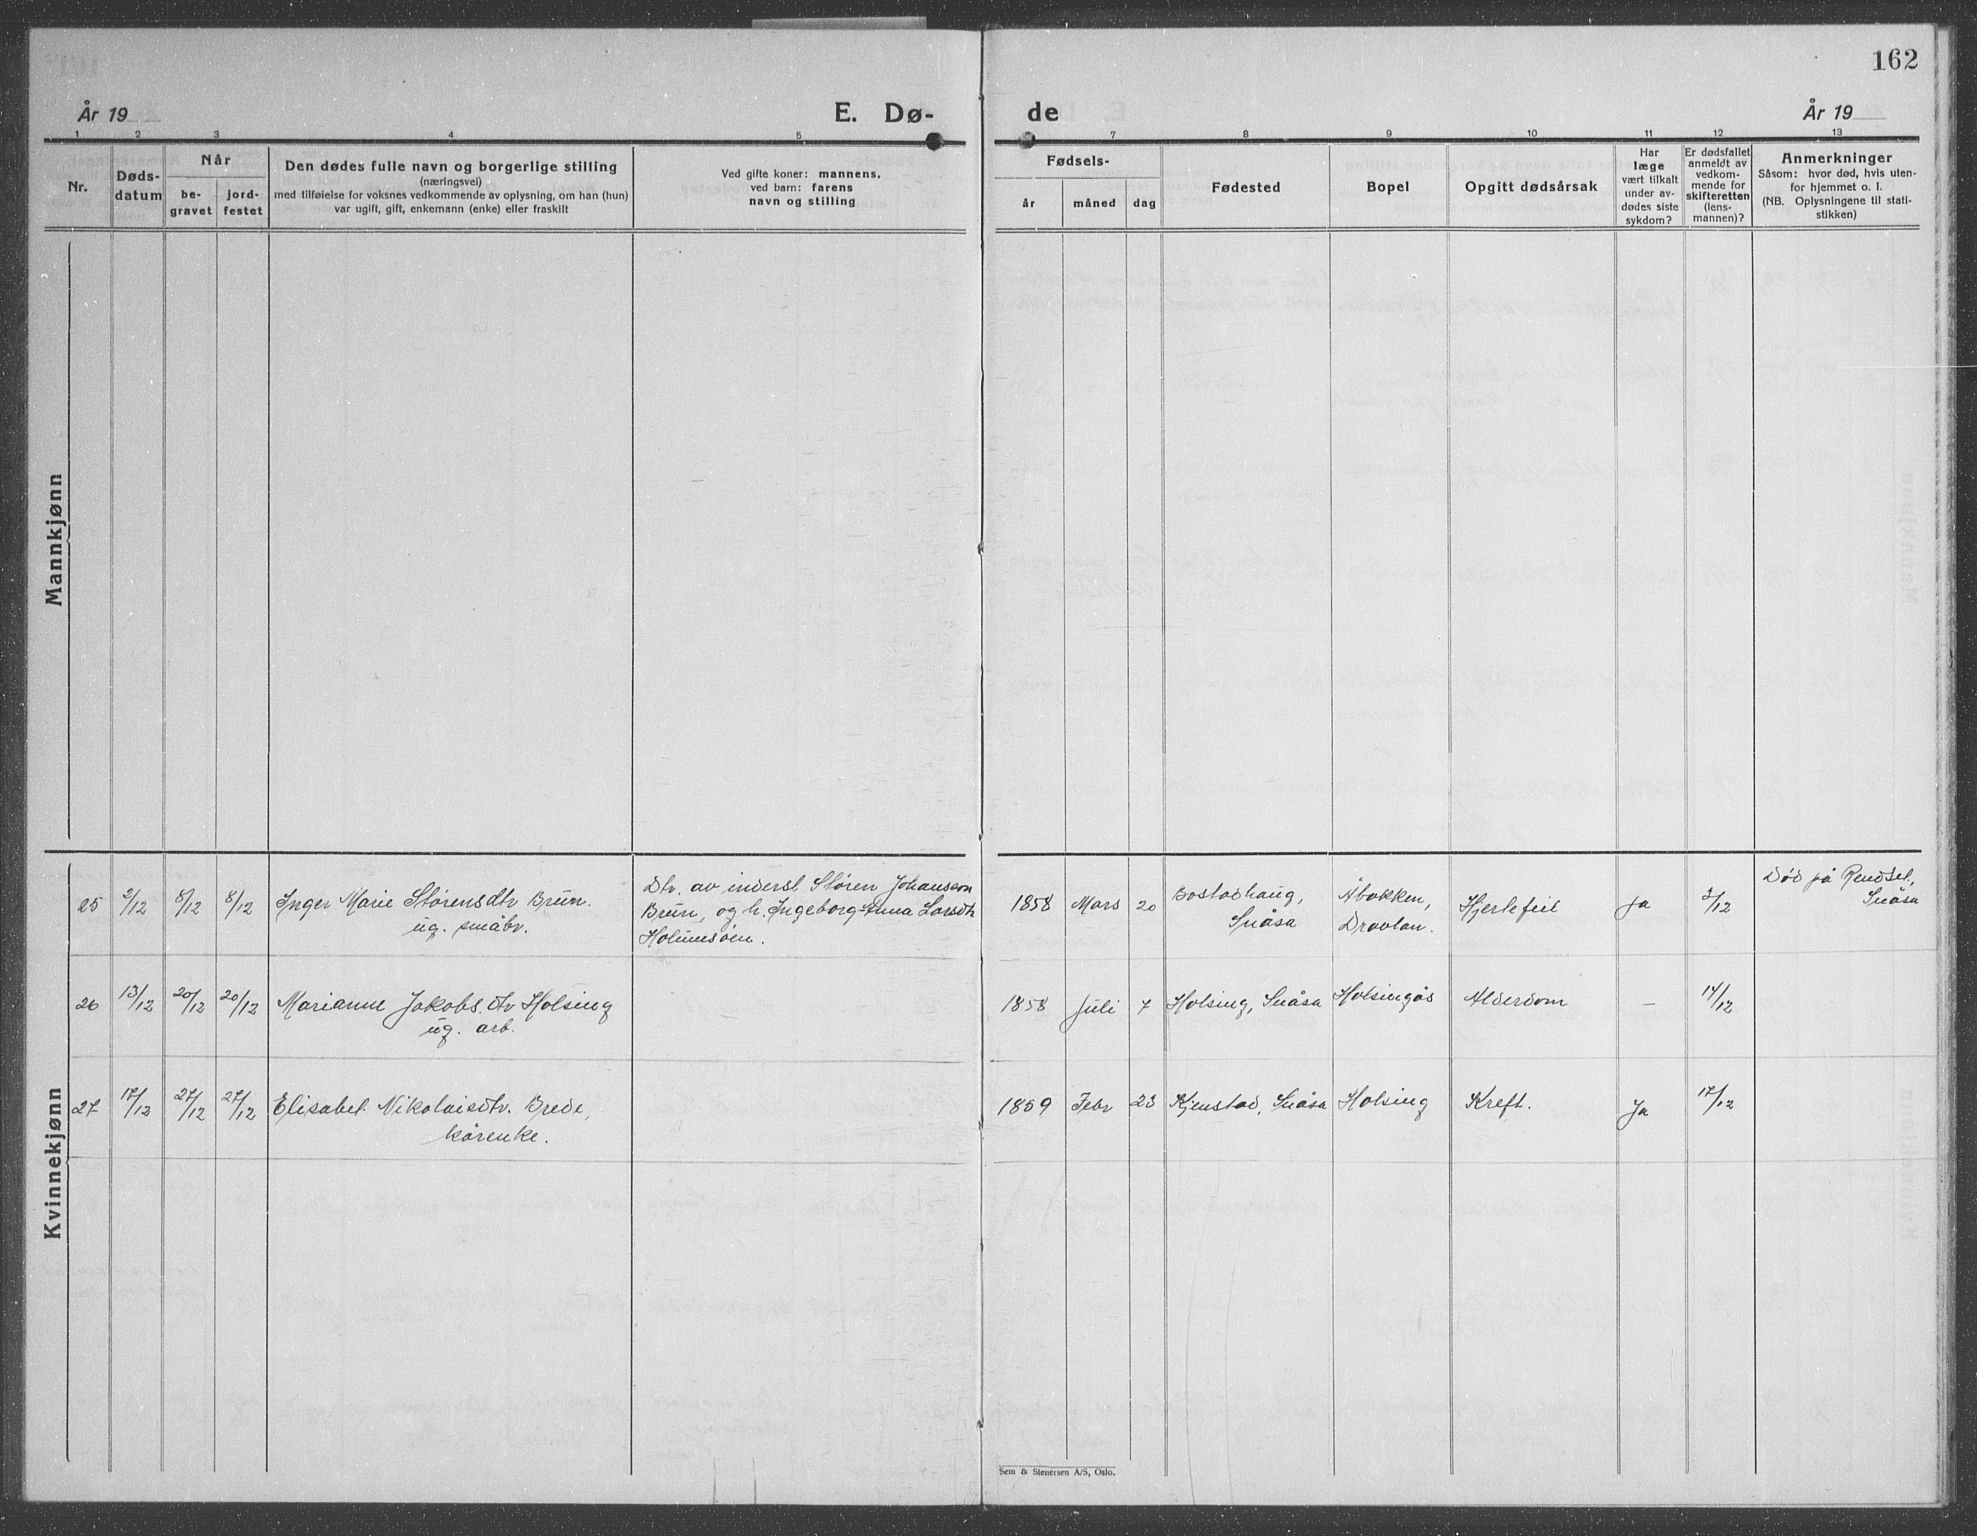 162
År 19
E. Dø-
de
År 19
1 2 3 4 5 7 8 9 10 11 12 13
Nr.
Døds-
datum
Når
be-
gravet
jord-
festet
Den dødes fulle navn og borgerlige stilling
(næringsvei)
med tilføielse for voksnes vedkommende av oplysning, om han (hun)
var ugift, gift, enkemann (enke) eller fraskilt
Ved gifte koner: mannens,
ved barn: farens
navn og stilling
Fødsels-
år
måned
dag
Fødested
Bopel
Opgitt dødsårsak
Har
læge
vært tilkalt
under av-
dødes siste
sykdom?
Er dødsfallet
anmeldt av
vedkom-
mende for
skifteretten
(lens-
mannen)?
Anmerkninger
Såsom: hvor død, hvis uten-
for hjemmet o. l.
(NB. Oplysningene til stati-
stikken)
Mannkjønn
Kvinnekjønn
25 2/12 8/12 8/12 Inger Marie Størensdtr Brun.
ug. småbr.
Dtr. av inderst Støren Johanssen
Brun, og h. Ingeborg Anna Larsdtr
Holumsøen.
1858 Mars 20 Bostadhaug,
Snåsa
Åbakken,
Dravlan.
Hjertefeil Ja 3/12 Død på Rendsel,
Snåsa
26 13/12 20/12 20/12 Marianne Jakobsdtr Holsing
ug. arb.
1858 Juli 7 Holsing, Snåsa Holsingås Alderdom – 14/12
27 17/12 27/12 27/12 Elisabet Nikolaisdtr. Brede,
kårenke.
1859 Febr 23 Kjenstad, Snåsa Holsing Kreft. Ja 17/12
Sem & Stenersen A/S, Oslo.